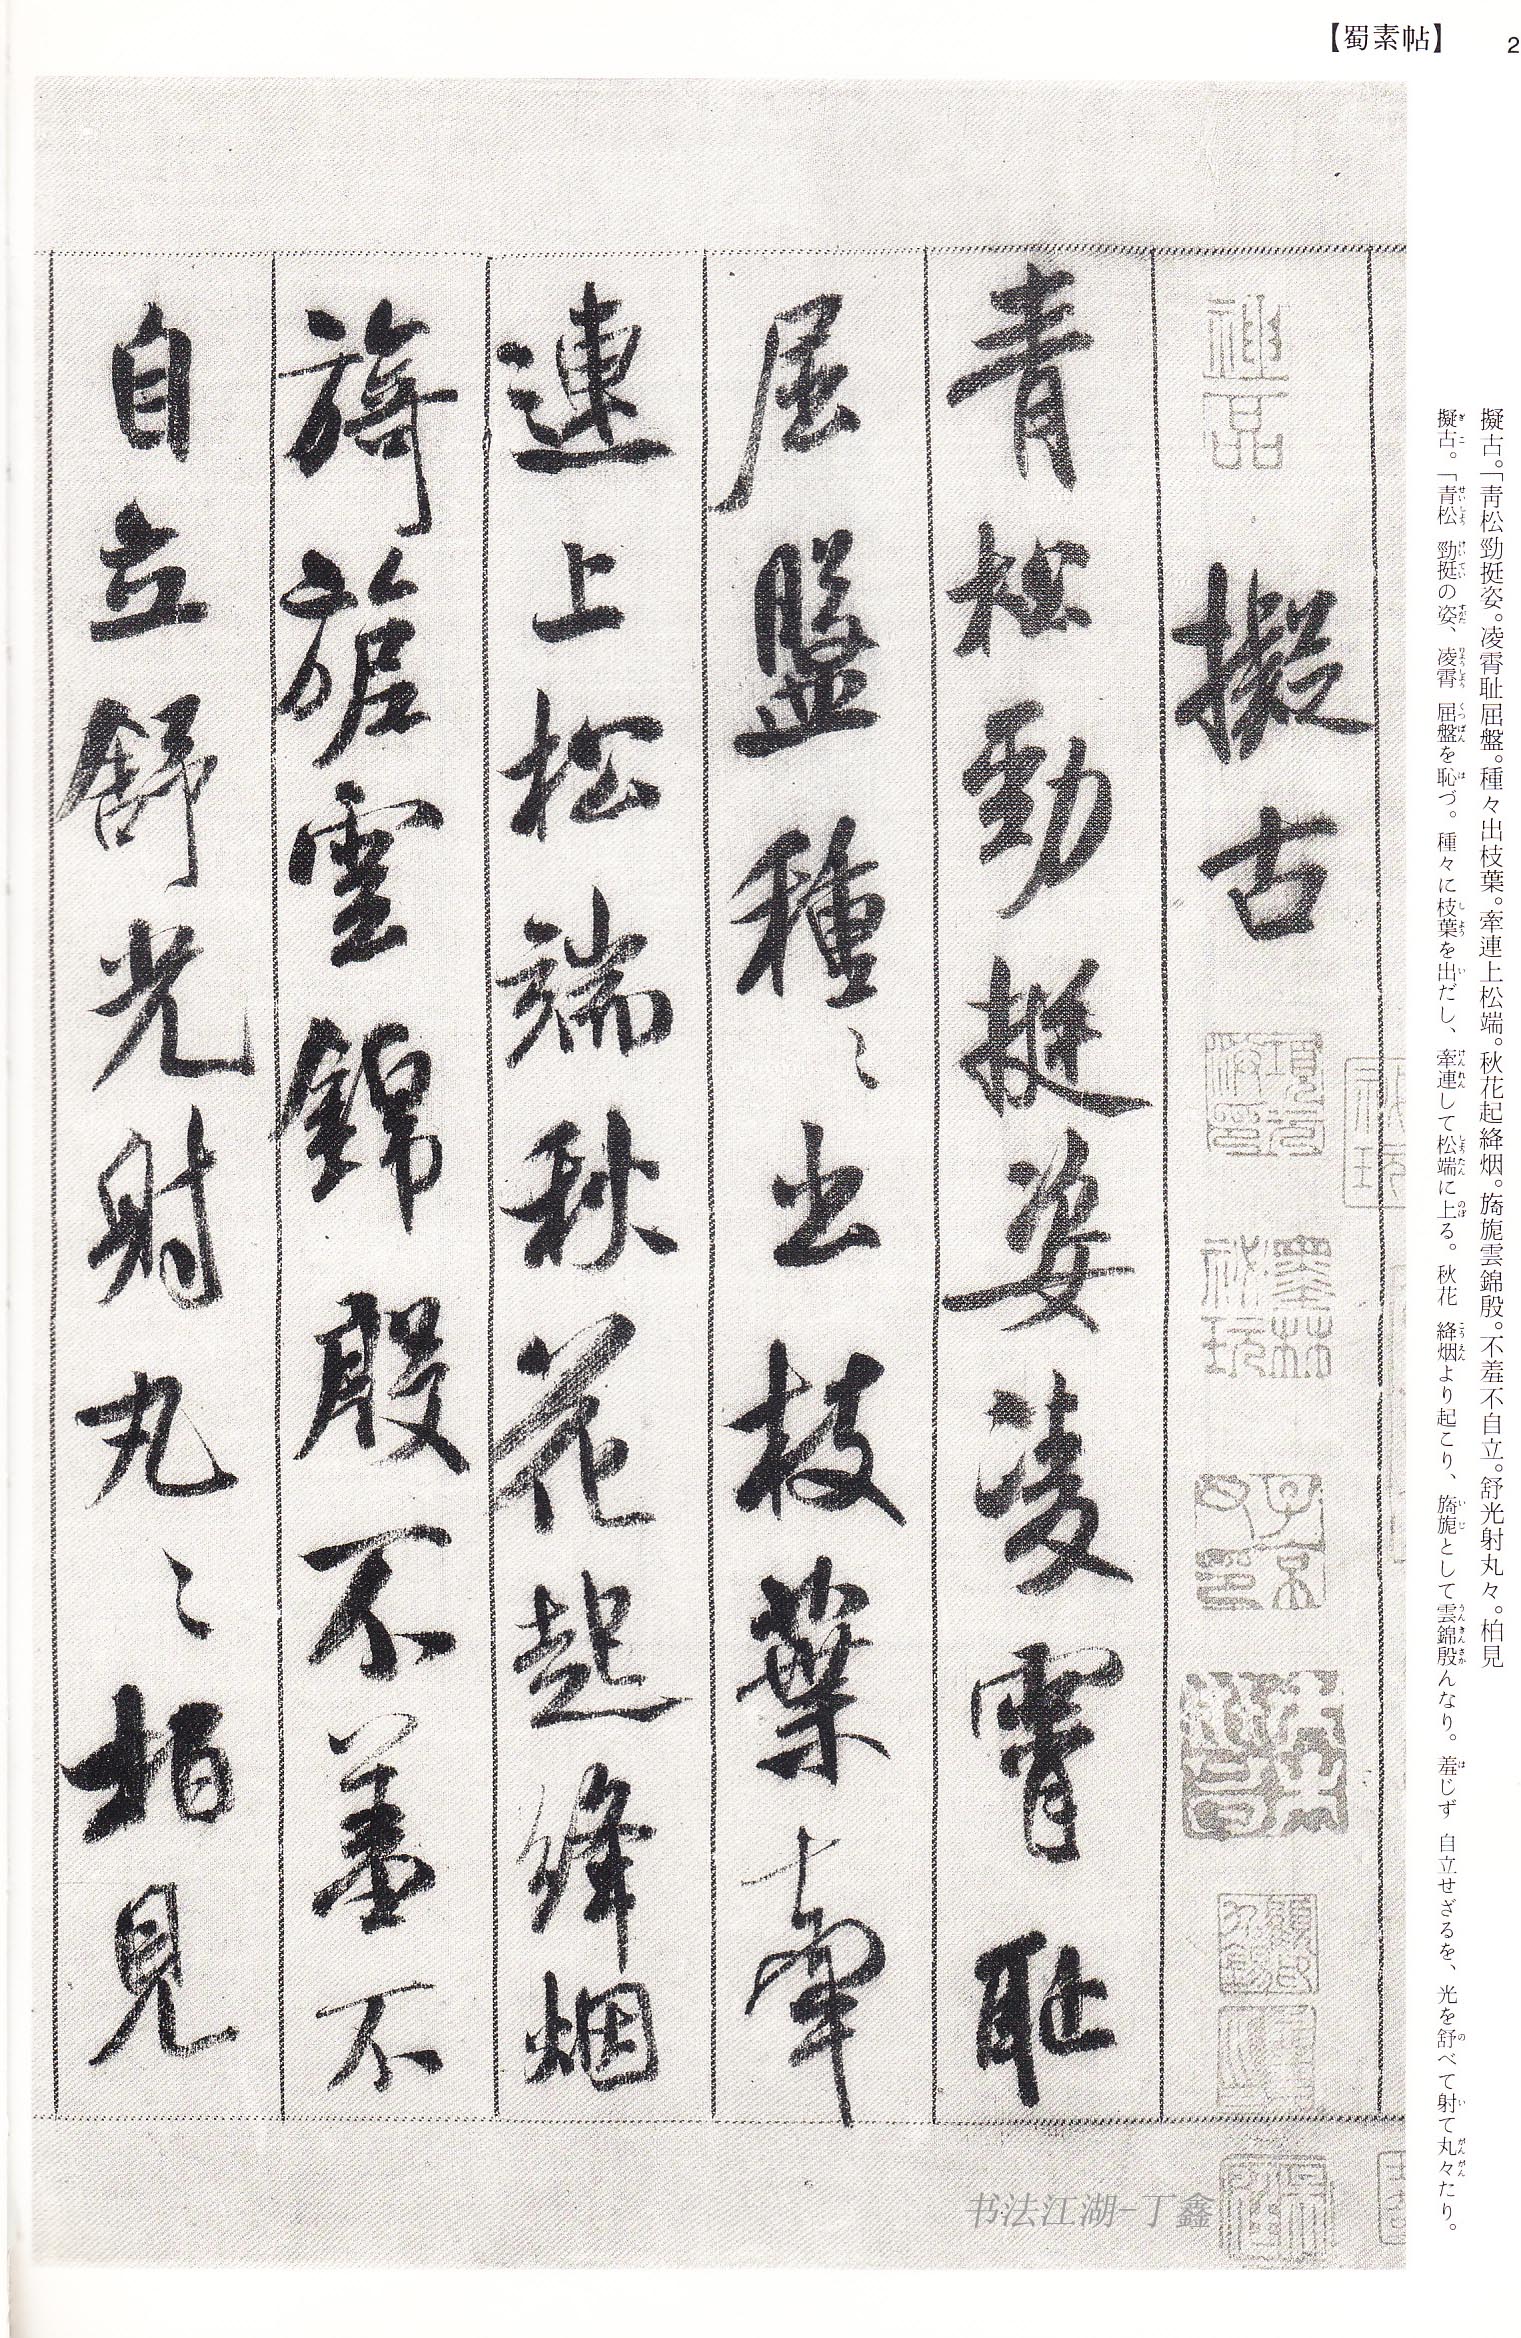 【蜀素帖】
2
擬古。「靑松勁挺姿。凌霄耻屈盤。種々出枝葉。牽連上松端。秋花起絳烟。旖旎雲錦殷。不羞不自立。舒光射丸々。柏見
擬古。「青松 勁挺の姿、凌霄 屈盤を恥づ。種々に枝葉を出だし、牽連して松端に上る。秋花 絳烟より起こり、旖旎として雲錦殷んなり。羞じず 自立せざるを、光を舒べて射て丸々たり。
神品
擬古
青松勁挺姿凌霄耻
屈盤種〻出枝葉牽
連上松端秋花起絳烟
旖旎雲錦殷不羞不
自立舒光射丸〻柏見
項元汴印
墨林秘玩
子京父印
书法江湖-丁鑫